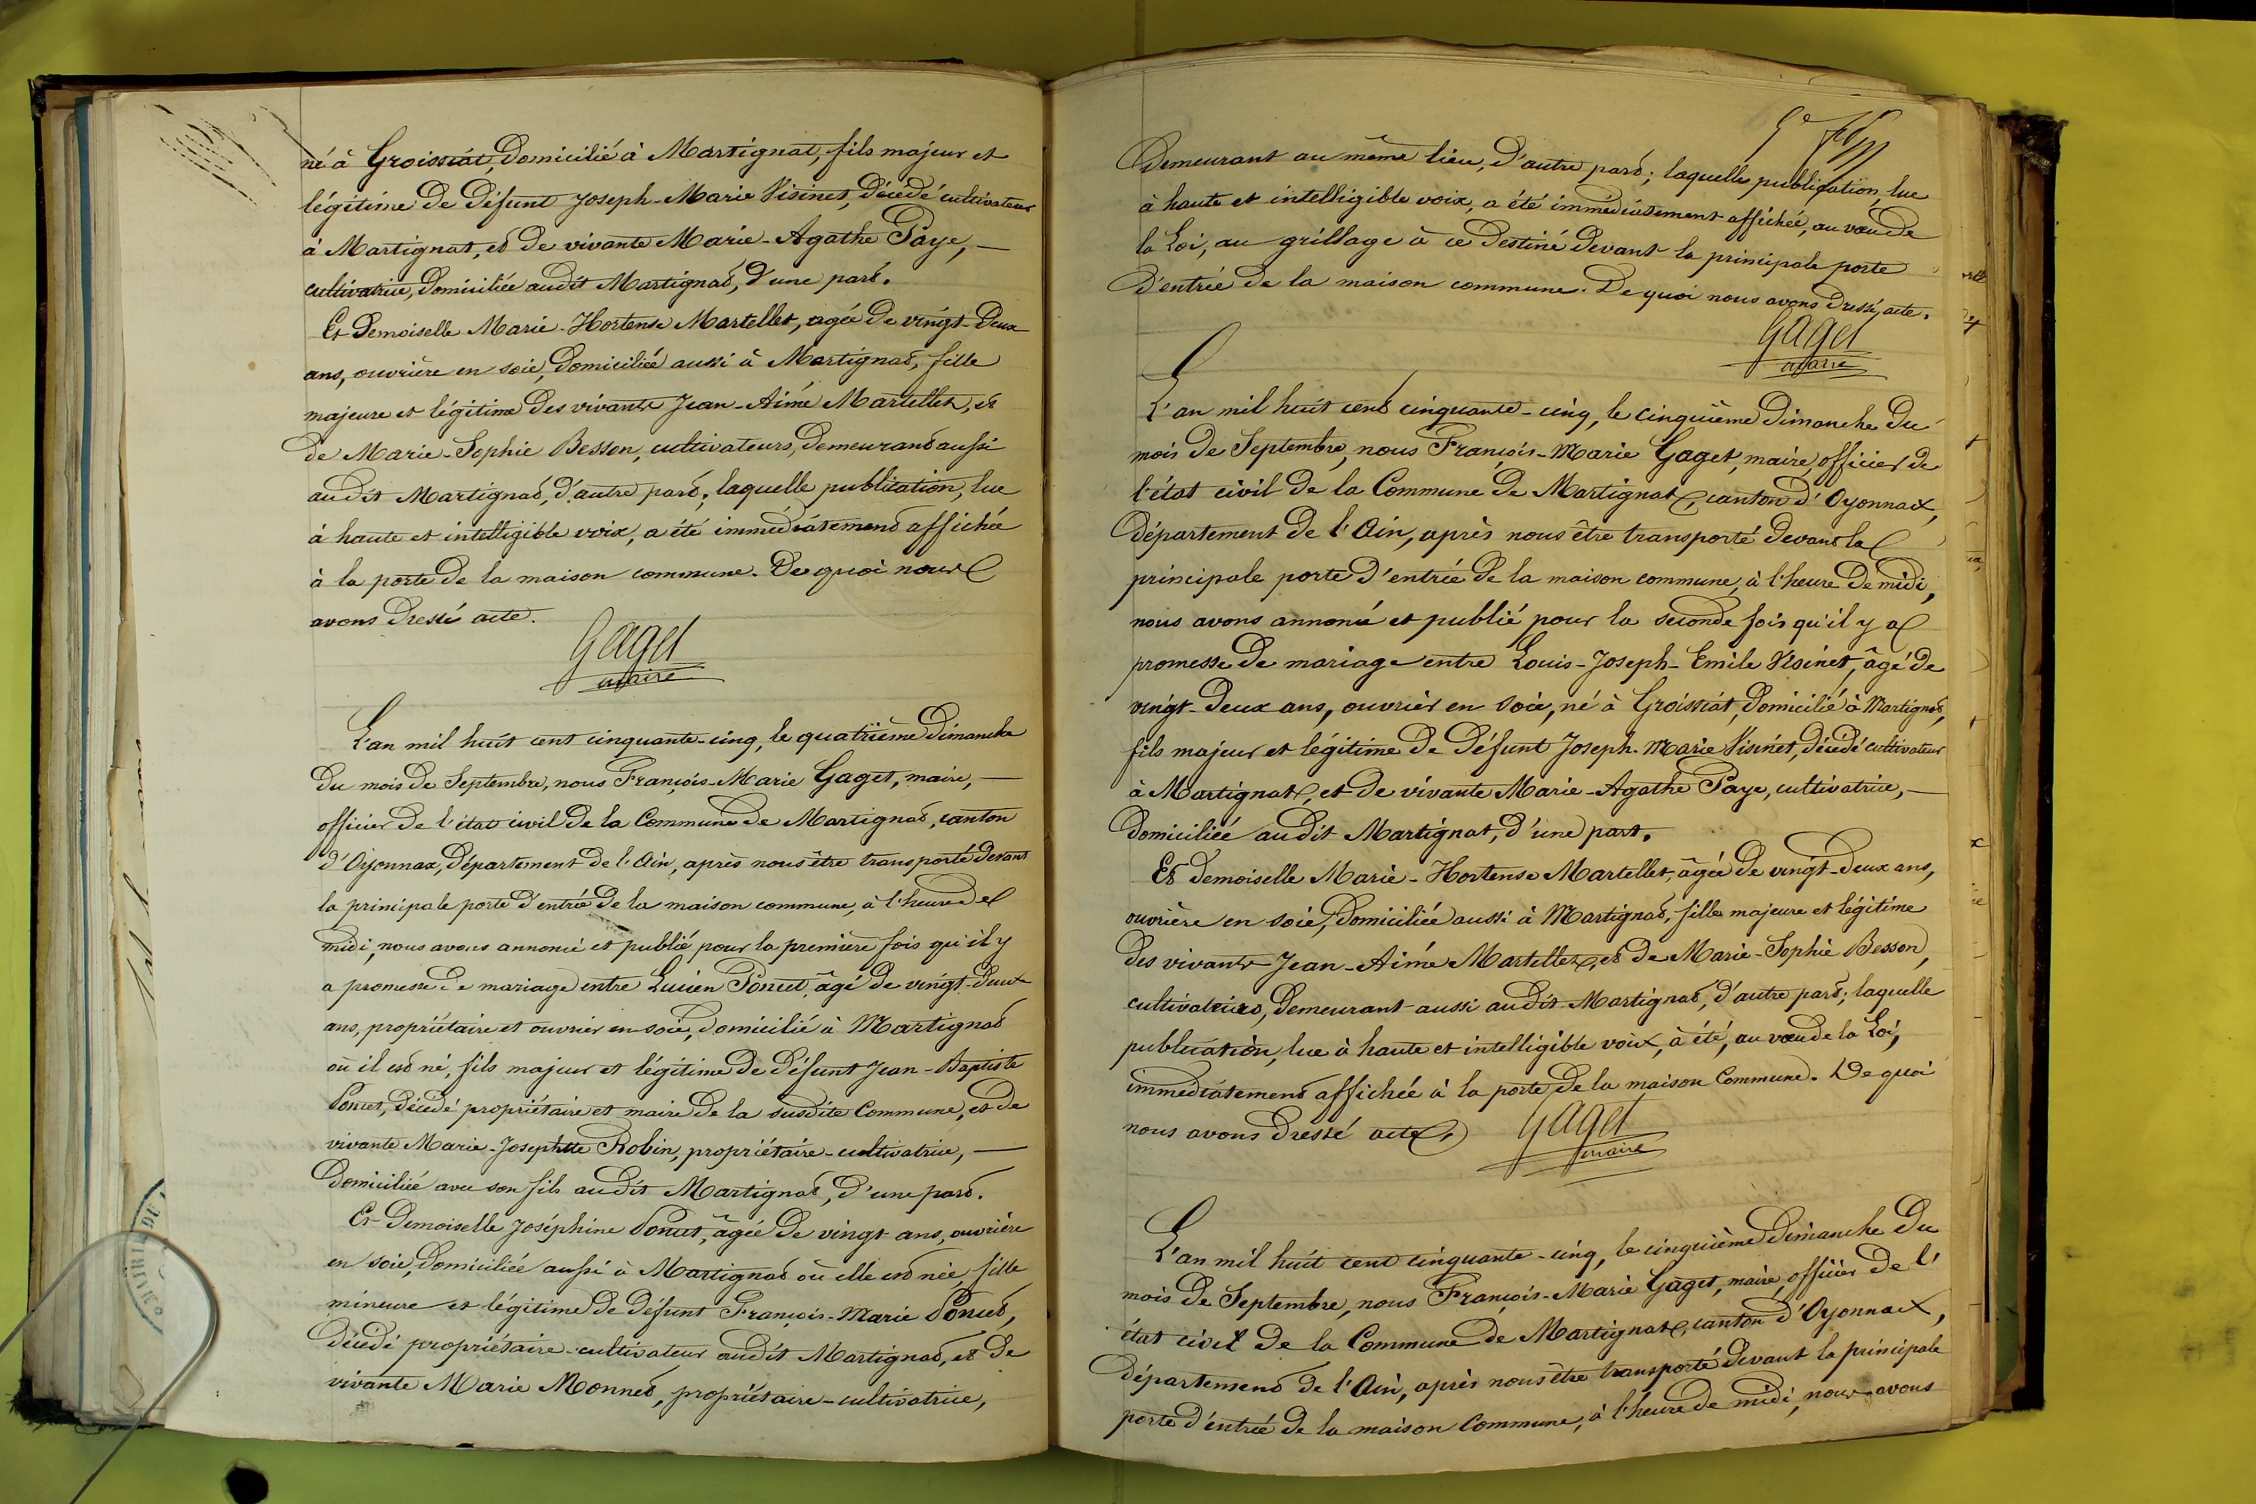 né à Groissiat, domicilié à Martignat, fils majeur et
légitime de défunt Joseph-Marie Visinet, décédé cultivateur
à Martignat, et de vivante Marie-Agathe Paye, —
cultivatrice, domiciliée audit Martignat, d'une part.
Et demoiselle Marie-Hortense Martellet, agée de vingt-deux
ans, ouvrière en soie, domiciliée aussi à Martignat, fille
majeure et légitime des vivants Jean-Aimé Martellet, et
de Marie-Sophie Besson, cultivateurs, demeurant aussi
audit Martignat, d'autre part; laquelle publication, lue
à haute et intelligible voix, a été immédiatement affichée
à la porte de la maison commune. De quoi nous
avons dressé acte.
Gaget
maire
L'an mil huit cent cinquante-cinq, le quatrième dimanche
du mois de Septembre, nous François-Marie Gaget, maire, —
officier de l'état civil de la Commune de Martignat, canton
d'Oyonnax, département de l'Ain, après nous être transporté devant
la principale porte d'entrée de la maison commune, à l'heure de
midi, nous avons annoncé et publié pour la première fois qu'il y
a promesse de mariage entre Lucien Poncet, âgé de vingt-deux
ans, propriétaire et ouvrier en soie, domicilié à Martignat
où il est né, fils majeur et légitime de défunt Jean-Baptiste
Poncet, décédé propriétaire et maire de la susdite Commune, et de
vivante Marie-Josephtte Robin, propriétaire-cultivatrice, —
domiciliée avec son fils audit Martignat, d'une part.
Et demoiselle Joséphine Poncet, âgée de vingt ans, ouvrière
en soie, domiciliée aussi à Martignat où elle est née, fille
mineure et légitime de défunt François-Marie Poncet,
décédé propriétaire-cultivateur audit Martignat, et de
vivante Marie Monnet, propriétaire-cultivatrice,
MAIRIE DE
demeurant au même lieu, d'autre part; laquelle publication, lue
à haute et intelligible voix, a été immédiatement affichée, au vœu de
la Loi, au grillage à ce destiné devant la principale porte
d'entrée de la maison commune. De quoi nous avons dressé acte.
Gaget
maire
L'an mil huit cent cinquante-cinq, le cinquième dimanche du
mois de Septembre, nous François-Marie Gaget, maire, officier de
l'état civil de la Commune de Martignat, canton d'Oyonnax,
département de l'Ain, après nous être transporté devant la
principale porte d'entrée de la maison commune, à l'heure de midi,
nous avons annoncé et publié pour la seconde fois qu'il y a
promesse de mariage entre Louis-Joseph-Emile Visinet, âgé de
vingt-deux ans, ouvrier en soie, né à Groissiat, domicilié à Martignat,
fils majeur et légitime de défunt Joseph-Marie Visinet, décédé cultivateur
à Martignat, et de vivante Marie-Agathe Paye, cultivatrice, —
domiciliée audit Martignat, d'une part.
Et demoiselle Marie-Hortense Martellet, âgée de vingt-deux ans,
ouvrière en soie, domiciliée aussi à Martignat, fille majeure et légitime
des vivants Jean-Aimé Martellet, et de Marie-Sophie Besson,
cultivateurs, demeurant aussi audit Martignat, d'autre part; laquelle
publication, lue à haute et intelligible voix, à été, au vœu de la Loi,
immédiatement affichée à la porte de la maison Commune. De quoi
nous avons dressé acte.
Gaget
maire
L'an mil huit cent cinquante-cinq, le cinquième dimanche du
mois de Septembre, nous François-Marie Gaget, maire, officier de l'
état civil de la Commune de Martignat, canton d'Oyonnax,
département de l'Ain, après nous être transporté devant la principale
porte d'entrée de la maison Commune, à l'heure de midi, nous avons